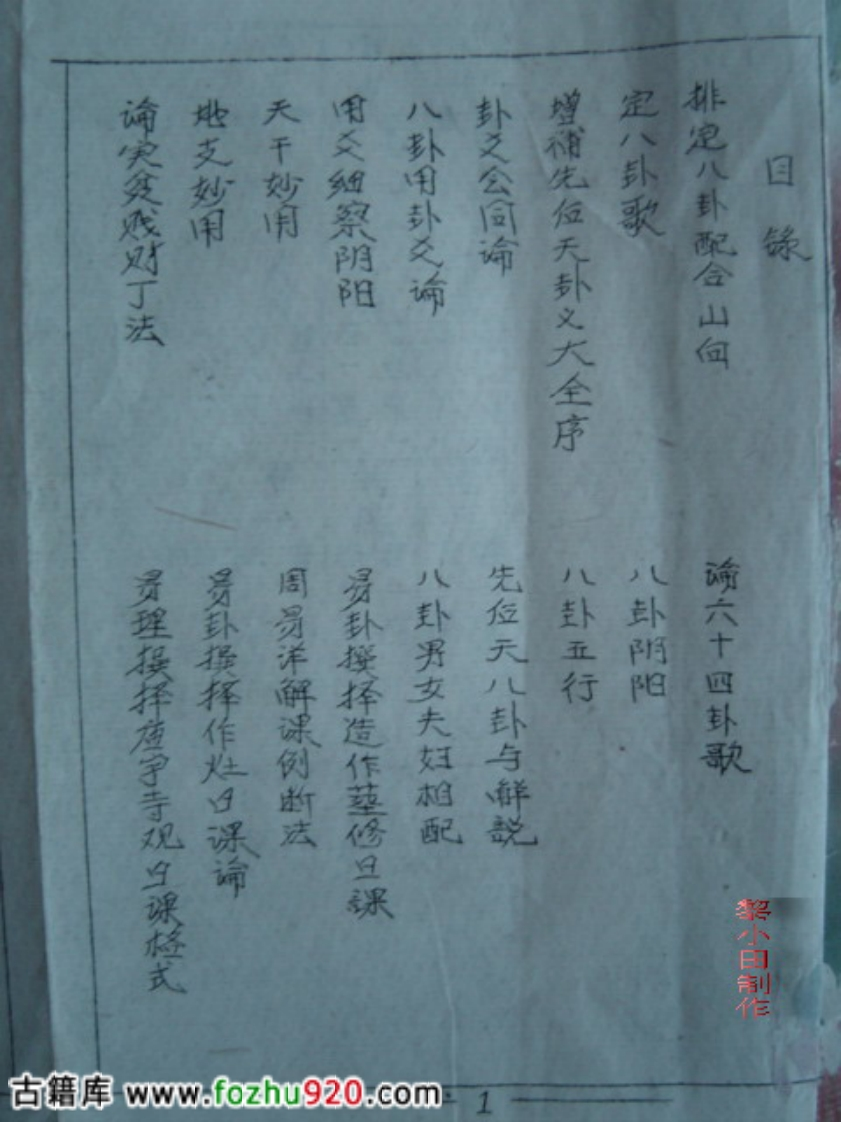 目录
排定八卦配合山向
论六十四卦歌
定八卦歌
八卦阴阳
增补先后天卦义大全序
八卦五行
卦爻会同论
先后天八卦与解説
八卦用卦爻论
八卦男女夫妇相配
用爻细察阴阳
易卦撰择造作墓修日課
天干妙用
周易详解课例断法
地支妙用
易卦撰择作灶日课论
论灾贫贱财丁法
易理撰择庙宇寺观日课格式
黎小田制作
古籍库 www.fozhu920.com
1